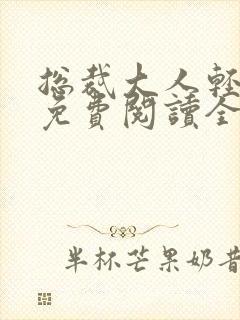 总裁大人轻
免費閱讀全
半杯芒果奶昔